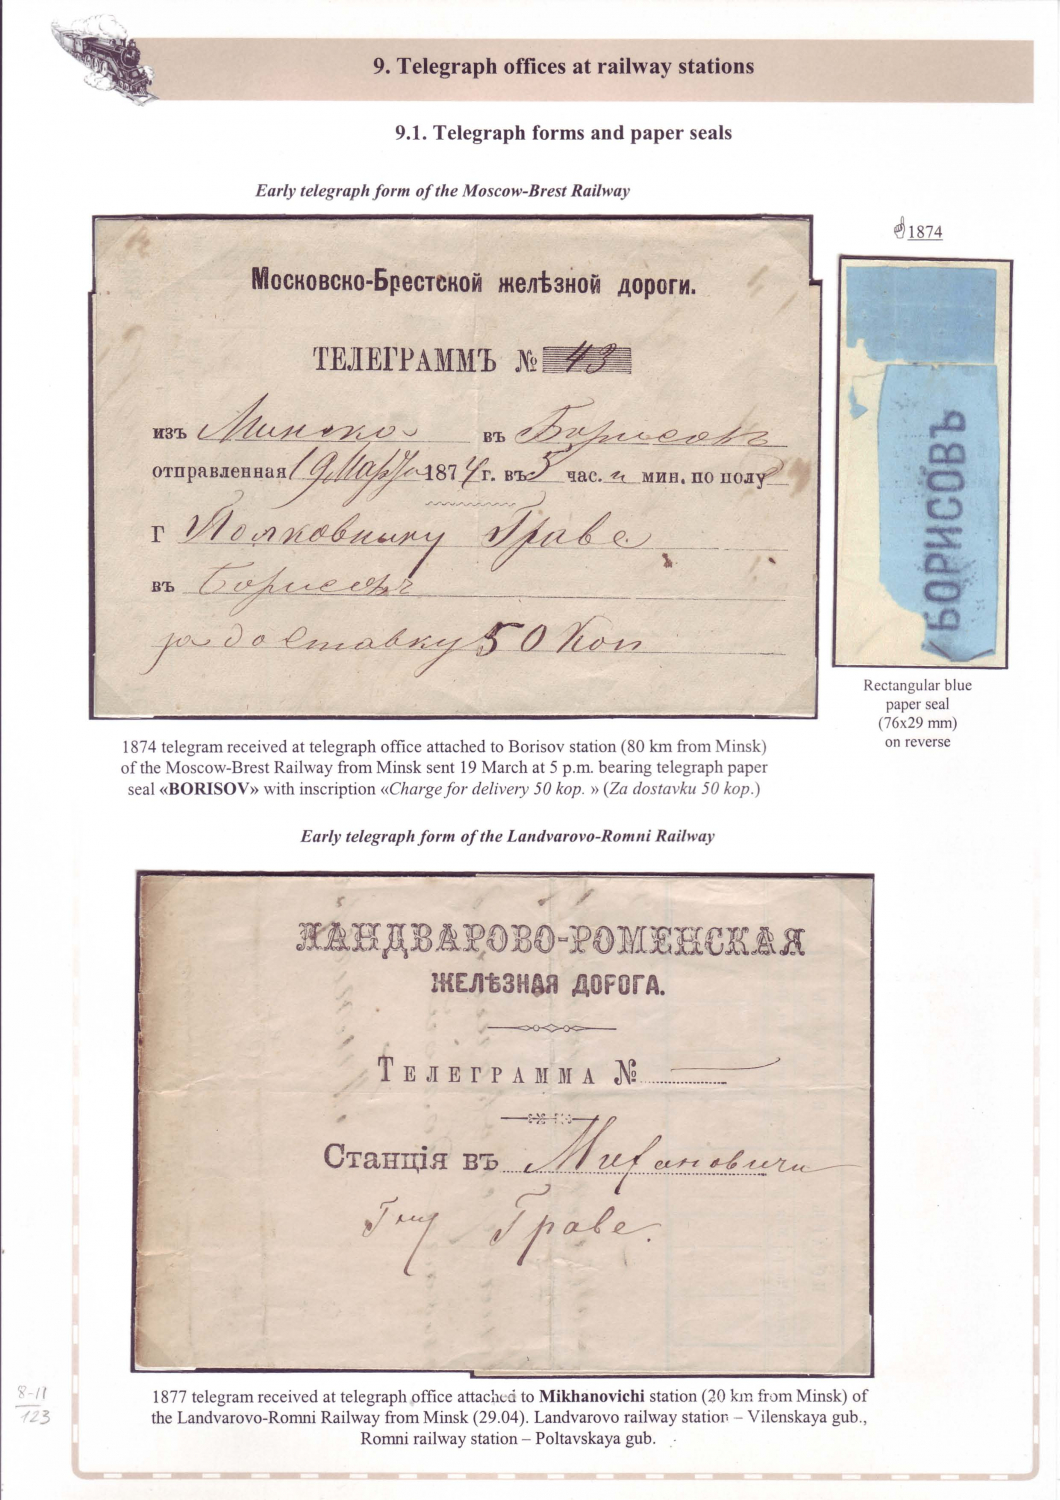 9. Telegraph offices at railway stations
9.1. Telegraph forms and paper seals
Early telegraph form of the Moscow-Brest Railway
1874
Московско-Брестской желѣзной дороги.
ТЕЛЕГРАММЪ № 43
изъ Минска въ Борисовъ
отправленная 19 Марта 1874 г. въ 5 час. мин. по полу
Г Полковнику Граве
въ Борисовъ
за доставку 50 Коп
БОРИСОВЪ
Rectangular blue
paper seal
(76x29 mm)
on reverse
1874 telegram received at telegraph office attached to Borisov station (80 km from Minsk)
of the Moscow-Brest Railway from Minsk sent 19 March at 5 p.m. bearing telegraph paper
seal «BORISOV» with inscription «Charge for delivery 50 kop. » (Za dostavku 50 kop.)
Early telegraph form of the Landvarovo-Romni Railway
ЛАНДВАРОВО-РОМЕНСКАЯ
ЖЕЛѢЗНАЯ ДОРОГА.
ТЕЛЕГРАММА №
Станція въ Михановичи
Граве.
1877 telegram received at telegraph office attached to Mikhanovichi station (20 km from Minsk) of
the Landvarovo-Romni Railway from Minsk (29.04). Landvarovo railway station – Vilenskaya gub.,
Romni railway station – Poltavskaya gub.
8-11
123